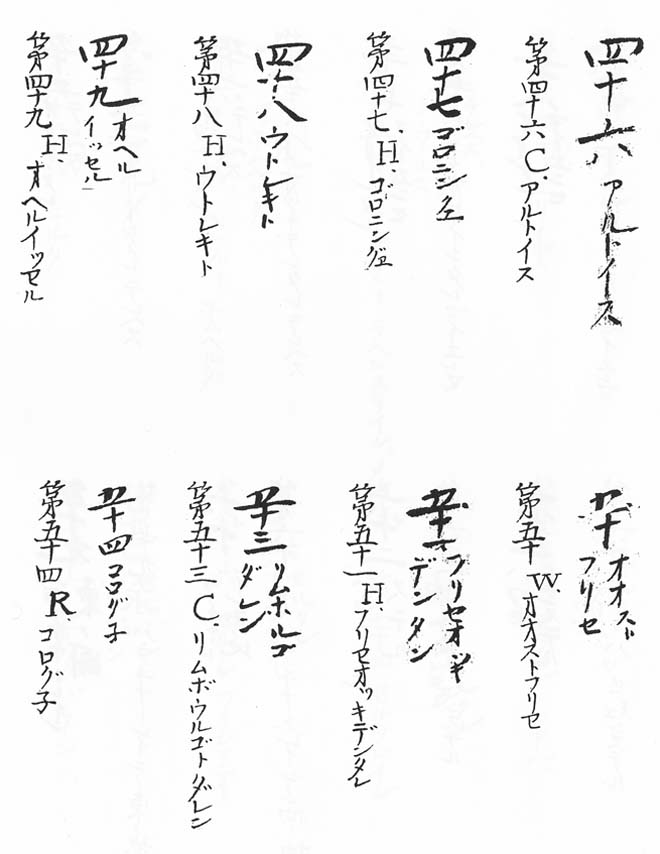 四十六 アルトイース
第四十六 C、アルトイス
四十七 ゴロニンクエ
第四十七、H、ゴロニング
四十八 ウトレキト
第四十八 H、ウトレキト
四十九 オヘル
イッセル
第四十九 H、オヘルイッセル
五十 オオスト
フリセ
第五十 W、オオストフリセ
五十一 フリセオッキ
デンタン
第五十一 H、フリセオッキデンタレ
五十三 リムホルゴ
ダレン
第五十三 C、リムボウルゴトダレン
五十四 コログ子
第五十四 R、コログ子